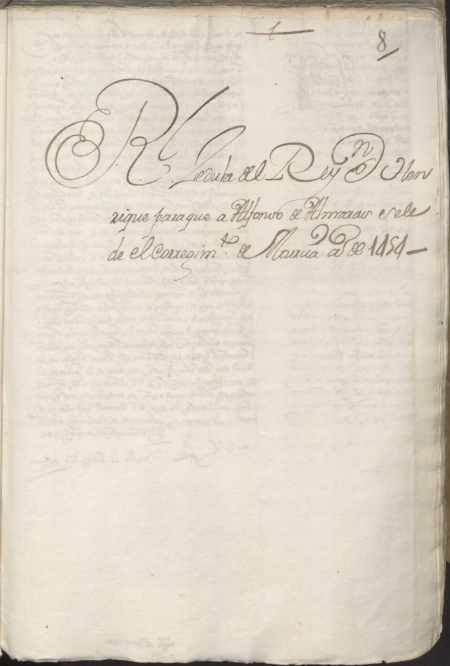 1
8
Rl. Cedula del Rey Dn. Hen
rique para que a Alfonso de Almaraz se le
de el Corregimto. de Murcia año de 1454